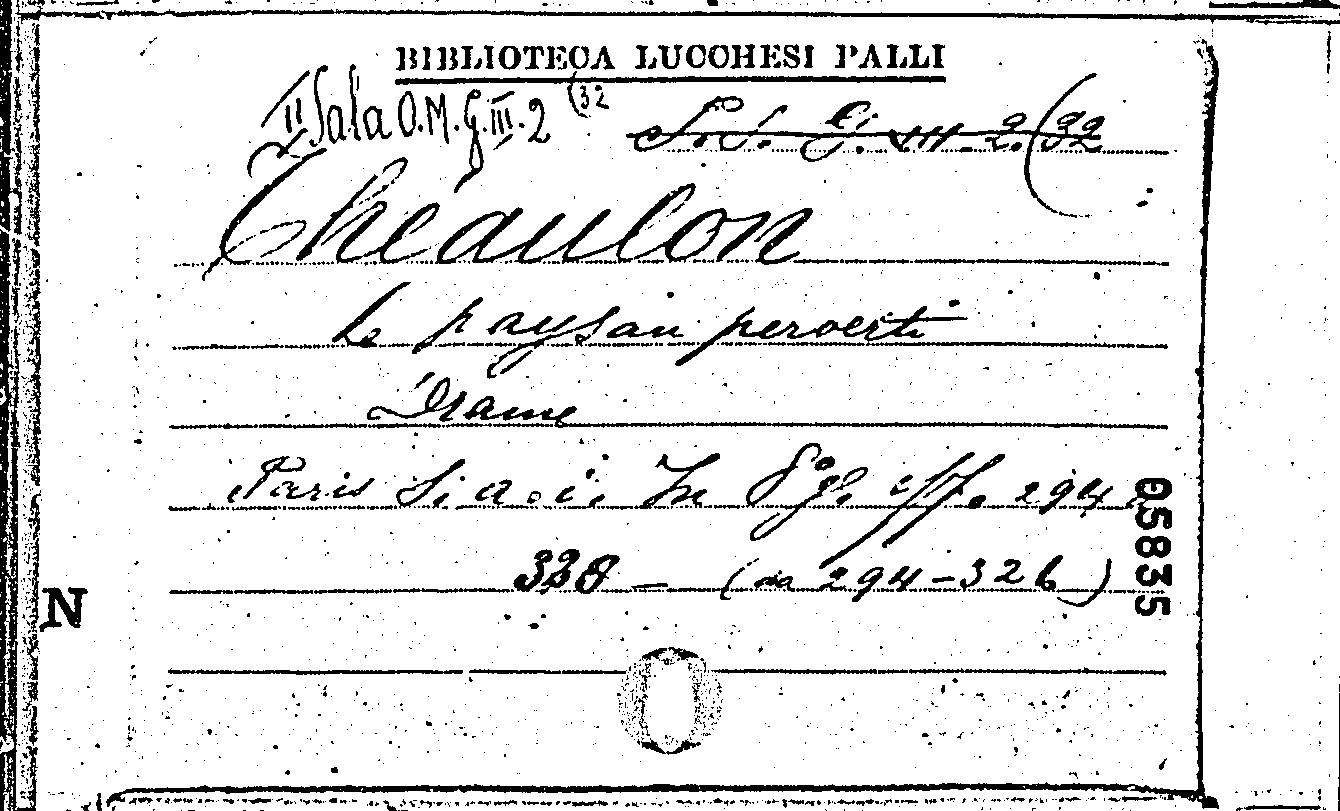 BIBLIOTECA LUCCHESI PALLI
II Sala O.M.G.III.2 (32
S.S. G. III. 2. (32
Theaulon
Le paysan perverti
Drame
Paris S. a. i. In 8º gr. pp. 294
328 – (da 294-326)
05835
N